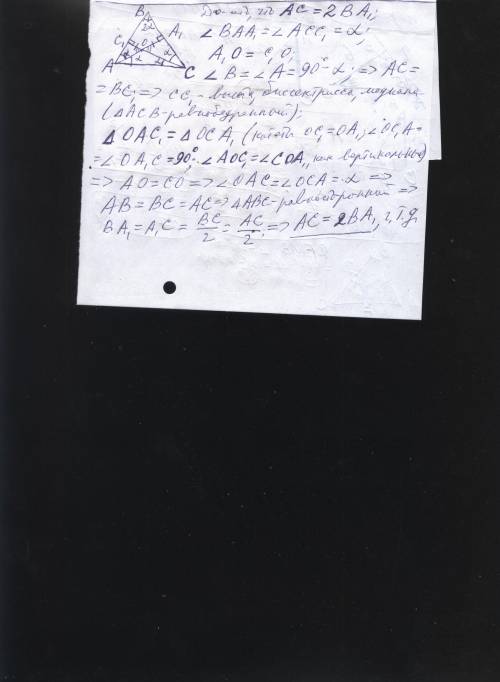 Доказ, что AC = 2BA₁;
∠BAA₁ = ∠ACC₁ = α;
A₁O = C₁O;
∠B = ∠A = 90° - α; => AC =
= BC; => CC₁ - высота, биссектриса, медиана
(△ACB - равнобедренный);
△OAC₁ = △OCA₁ (катеты OC₁ = OA₁, ∠OC₁A =
= ∠OA₁C = 90°. ∠AOC₁ = ∠COA₁, как вертикальные)
=> AO = CO => ∠OAC = ∠OCA = α =>
AB = BC = AC => △ABC - равносторонний =>
BA₁ = A₁C = BC/2 = AC/2; => AC = 2BA₁, ч.т.д.
B
2α
C₁
O
A₁
α
α
A
C